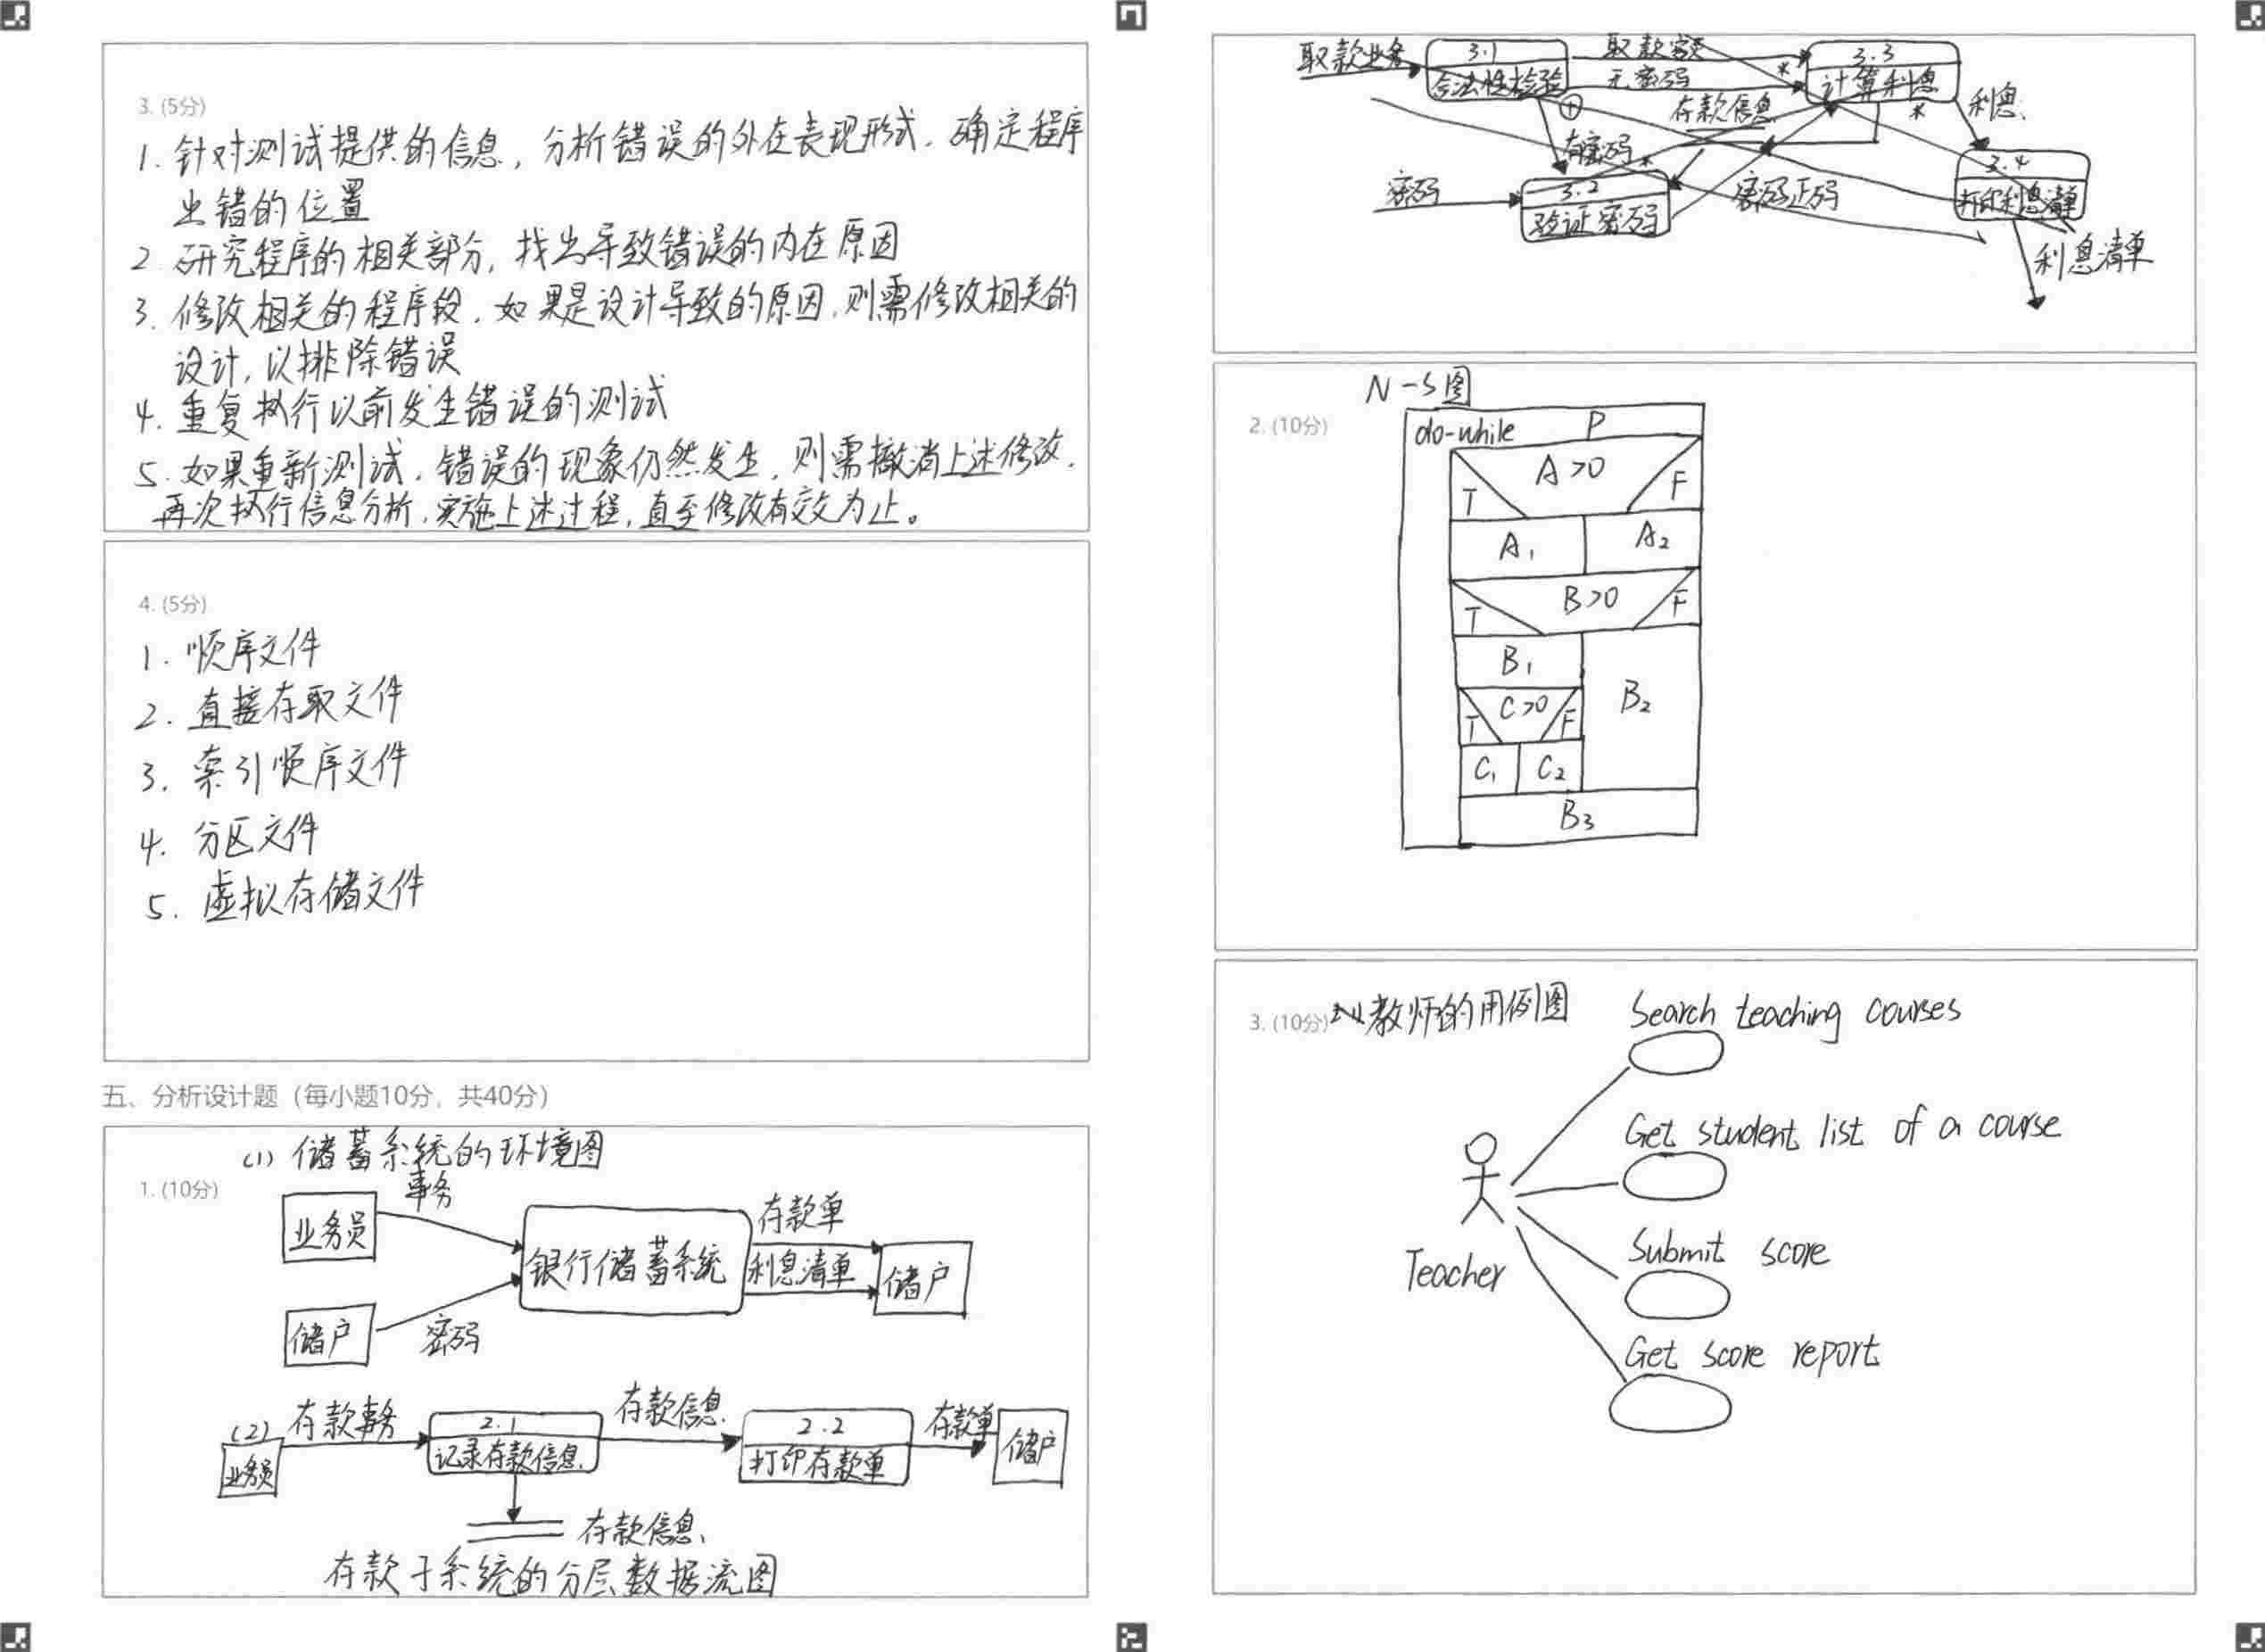 3. (5分)
1. 针对测试提供的信息，分析错误的外在表现形式，确定程序
出错的位置
2. 研究程序的相关部分，找出导致错误的内在原因
3. 修改相关的程序段，如果是设计导致的原因，则需修改相关的
设计，以排除错误
4. 重复执行以前发生错误的测试
5. 如果重新测试，错误的现象仍然发生，则需撤消上述修改，
再次执行信息分析，实施上述过程，直至修改有效为止。
4. (5分)
1. 顺序文件
2. 直接存取文件
3. 索引顺序文件
4. 分区文件
5. 虚拟存储文件
五、分析设计题（每小题10分，共40分）
(1) 储蓄系统的环境图
1. (10分)
业务员
事务
储户
密码
银行储蓄系统
存款单
利息清单
储户
(2)
业务员
存款事务
2.1
记录存款信息
存款信息
2.2
打印存款单
存款单
储户
存款信息
存款子系统的分层数据流图
取款业务
3.1
合法性检验
取款额
无密码
*
3.3
计算利息
*
利息
存款信息
有密码
*
密码
3.2
验证密码
密码正码
3.4
打印利息清单
利息清单
N-S图
2. (10分)
do-while P
A>0
T F
A1 A2
B>0
T F
B1
B2
C>0
T F
C1 C2
B3
3. (10分)
教师的用例图
Search teaching courses
Get student list of a course
Submit score
Teacher
Get score report